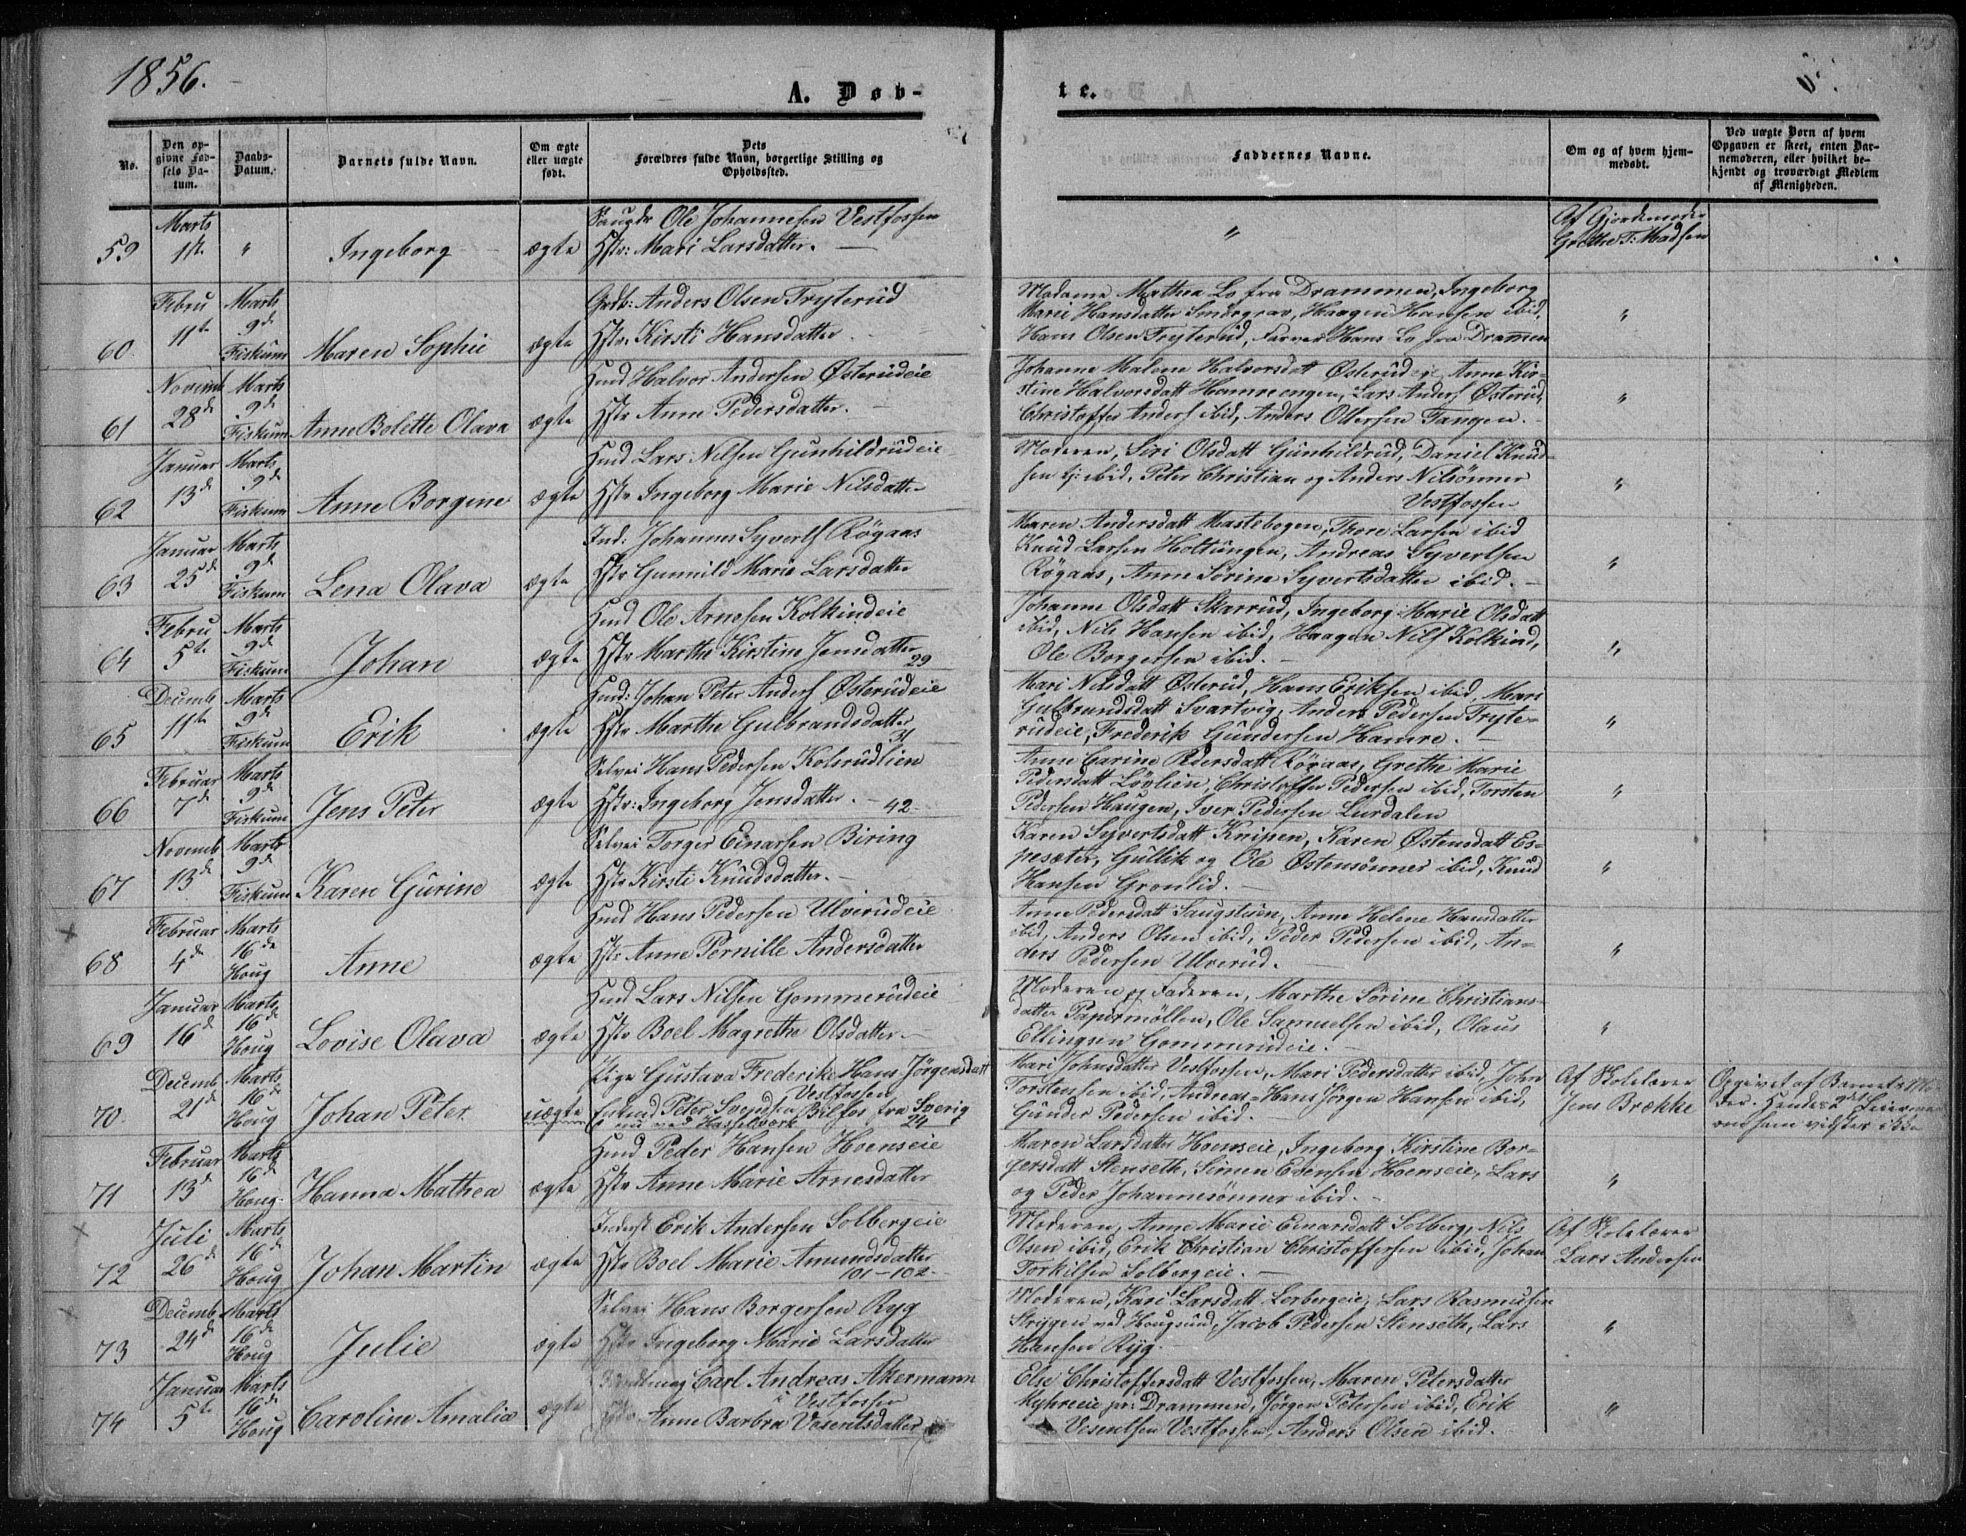 1856.
A. Døb-
te.
No.
Den op-
givne Fød-
sels Da-
tum.
Daabs-
Datum.
Barnets fulde Navn.
Om ægte
eller uægte
født.
Dets
Forældres fulde Navn, borgerlige Stilling og
Opholdssted.
Faddernes Navne.
Om og af hvem hjem-
medøbt.
Ved uægte Børn af hvem
Opgaven er skeet, enten Bar-
nemoderen, eller hvilket be-
kjendt og troværdigt Medlem
af Menigheden.
59
Marts
1ste
"
Ingeborg
ægte
Ole Johannesen Vestfossen
Hstr: Mari Larsdatter.
"
Af Gjordemoder
Grethe T. Madsen
60.
Febru
11te
Marts
9de
Fiskum
Maren Sophie
ægte
Grdb: Anders Olsen Tryterud
Hstr: Kirsti Hansdatter
Madame Mathea Lo fra Drammen, Ingeborg
Marie Hansdatter Smørgrav, Haagen Hansen ibid,
Hans Olsen Tryterud, Farver Hans Lo fra Drammen
"
61
Novemb
28de
Marts
9de
Fiskum
Anne Bolette Olava
ægte
Hmd Halvor Andersen Østerudeie
Hstr Anne Pedersdatter.
Johanne Malene Halvorsdatt Østerudeie, Anne Kir-
stine Halvorsdatt Hamreengen, Lars Anders Østerud,
Christoffer Anders ibid, Anders Ottersen Tangen.
"
62
Januar
13de
Marts
9de
Fiskum
Anne Borgine
ægte
Hmd Lars Nilsen Gunhildrudeie
Hstr Ingeborg Marie Nilsdatter
Moderen, Siri Olsdatt Gunhildrud, Daniel Knud-
sen tj: ibid, Peter Christian og Anders Nilsønner
Vestfossen
"
63
Januar
25de
Marts
9de
Fiskum
Lena Olava
ægte
Ind: Johannes Syverts Røgaas
Hstr Gunnild Marie Larsdatter
Maren Andersdatt Mastebogen, Thore Larsen ibid
Knud Larsen Holtungen, Andreas Syvertsen
Røgaas, Anne Sørine Syvertsdatter ibid.
"
64
Febru
5te
Marts
9de
Fiskum
Johan
ægte
Hmd Ole Arnesen Kolkindeie
Hstr Marthe Kirstine Jensdatter
29
Johanne Olsdatt Skarrud, Ingeborg Marie Olsdatt
ibid, Nils Hansen ibid, Haagen Nils Kolkind,
Ole Borgersen ibid.
"
65
Decemb
11te
Marts
9de
Fiskum
Erik
ægte
Hmd: Johan Peter Anders Østerudeie
Hstr Marthe Gulbrandsdatter
31
Mari Nilsdatt Østerud, Hans Eriksen ibid, Mari
Gulbrandsdatt Svartvig, Anders Pedersen Tryte-
rudeie, Frederik Gundersen Hamre.
"
66
Februar
7de
Marts
9de
Fiskum
Jens Peter
ægte
Selvei Hans Pedersen Kolerudlien
Hstr: Ingeborg Jensdatter.
42.
Anne Carine Pedersdatt Røgaas, Grethe Marie
Pedersdatt Løvlien, Christoffer Pedersen ibid, Torsten
Pedersen Haugen, Iver Pedersen Lurdalen
"
67
Novemb
13de
Marts
9de
Fiskum
Karen Gurine
ægte
Selvei Torger Einarsen Biring
Hstr Kirsti Knudsdatter.
Karen Syvertsdatt Knipen, Karen Østensdatt Es-
pesæter, Gullik og Ole Østensønner ibid, Knud
Hansen Gronlid.
"
68
Februar
4de
Marts
16de
Houg
Anne
ægte
Hmd Hans Pedersen Ulverudeie
Hstr Anne Pernille Andersdatter
Anne Pedersdatt Saugstuen, Anne Helene Hansdatter
ibid, Anders Olsen ibid, Peder Pedersen ibid, An-
ders Pedersen Ulverud.
"
69
Januar
16de
Marts
16de
Houg
Lovise Olava
ægte
Hmd Lars Nilsen Gommerudeie
Hstr Boel Magrethe Olsdatter
Moderen og Faderen, Marthe Sørine Christians-
datter Papirmøllen, Ole Samuelsen ibid, Olaus
Ellingsen Gommerudeie.
"
70.
Decemb
21de
Marts
16de
Houg
Johan Peter
uægte
Pige Gustava Frederikke Hans Jørgensdatt
Vestfossen
Peter Svendsen Bilfos fra Sverig
nu ved Hasselverk 24
Mari Johnsdatter Vestfossen, Mari Pedersdatter ibid, John
Torstensen ibid, Andreas Hans Jørgen Hansen ibid,
Gunder Pedersen ibid.
Af Skolelærer
Jens Brække
Opgivet af Barnets Mo-
der. Hendes Leiermaal
om hun vidster ikke
71
Februar
13de
Marts
16de
Houg.
Hanna Mathea
ægte
Hmd Peder Hansen Hoenseie
Hstr Anne Marie Arnesdatter
Maren Larsdatter Hoenseie, Ingeborg Kirstine Bor-
gersdatt Stenseth, Simen Evensen Hoenseie, Lars
og Peder Johannesønner ibid.
"
72
Juli
26de
Marts
16de
Houg
Johan Martin
ægte
Inderst Erik Andersen Solbergeie
Hstr Boel Marie Amundsdatter
101-102.
Moderen, Anne Marie Einarsdatt Solberg, Nils
Olsen ibid, Erik Christian Christoffersen ibid, Johan
Torkilsen Solbergeie.
Af Skolelærer
Lars Andersen
73
Decemb
24de
Marts
16de
Houg
Julie
ægte
Selvei Hans Borgersen Ryg
Hstr Ingeborg Marie Larsdatter
Moderen, Kari Larsdatt Lerbergeie, Lars Rasmusen
Strygen ved Hougsund, Jacob Pedersen Stenseth, Lars
Hansen Ryg.
"
74
Januar
5te
Marts
16de
Houg
Caroline Amalia
ægte
Carl Andreas Akermann
i Vestfossen
Hstr Anne Barbra Vesentsdatter
Else Christoffersdatt Vestfossen, Maren Petersdatter
Myhreeie pr: Drammen, Jørgen Petersen ibid, Erik
Vesentsen Vestfossen, Anders Olsen ibid.
"